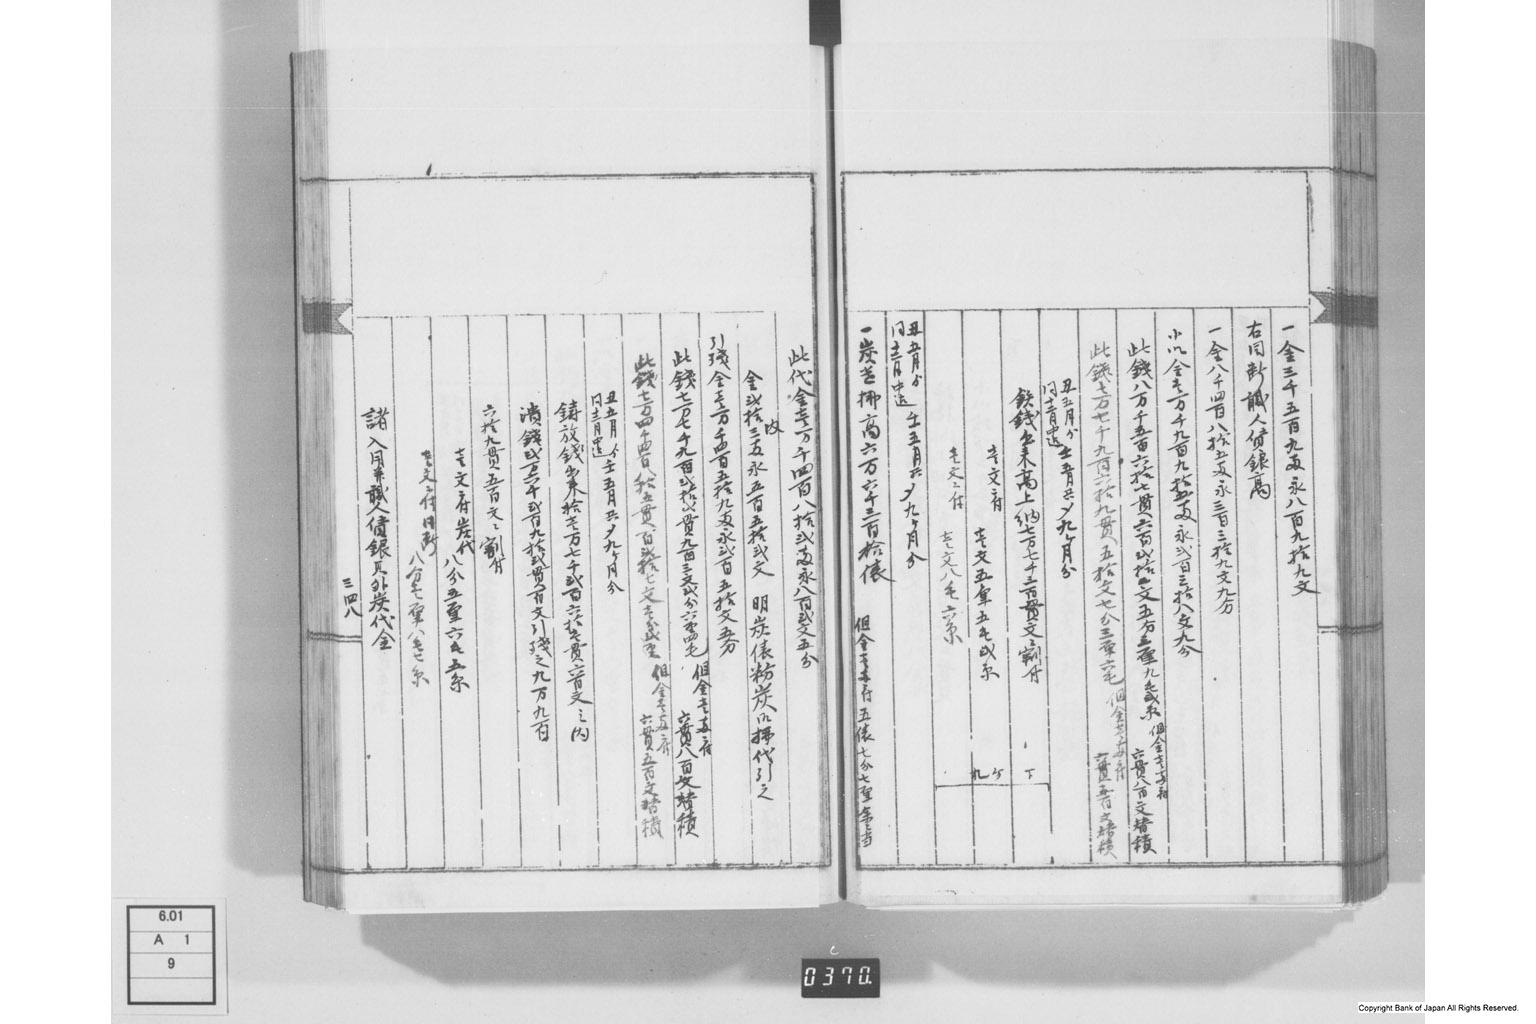 一金三千五百九両永八百九拾九文
右同断職人債銀高
一金八千四百八拾五両永三百三拾九文九分
小以金壱万千九百九拾五両永弐百三拾八文九分
此銭八万千五百六拾七貫六百弐拾四文五分五厘九毛弐糸 但金壱両ニ付
六貫八百文替積
此銭七万七千九百六拾九貫五拾文七分三厘六毛 但金壱両ニ付
六貫五百文替積
丑五月ゟ
同十二月中迄
壬五月共〆九ヶ月分
鉄銭出来高上納七万七千三百貫文ニ割付
壱文ニ付 壱文五厘五毛弐糸
壱文ニ付 壱文八毛六糸
丑五月ゟ
同十二月中迄
壬五月共〆九ヶ月分
一炭是拂高六万六千三百拾俵 但金壱両ニ付五俵七分七厘余当
此代金壱万千四百八拾弐両永八百弐文五分
内
金弐拾三両永五百五拾弐文 明炭俵粉炭御拂代引之
引残金壱万千四百五拾九両永弐百五拾文五分
此銭七万七千九百弐拾弐貫九百三文弐分六厘四毛 但金壱両ニ付
六貫八百文替積
此銭七万四千四百八拾五貫百弐拾七文壱分弐厘 但金壱両ニ付
六貫五百文替積
丑五月ゟ
同十二月中迄
壬五月共〆九ヶ月分
鋳放銭出来拾壱万七千弐百六拾壱貫六百文之内
潰銭弐万六千弐百九拾弐貫百文引残之九万九百
六拾九貫五百文ニ割付
壱文ニ付炭代 八分五厘六毛五糸
壱文ニ付同断 八分壱厘八毛七糸
諸入用并職人債銀其外炭代金
三四八
6.01
A 1
9
0370.
Copyright Bank of Japan All Rights Reserved.